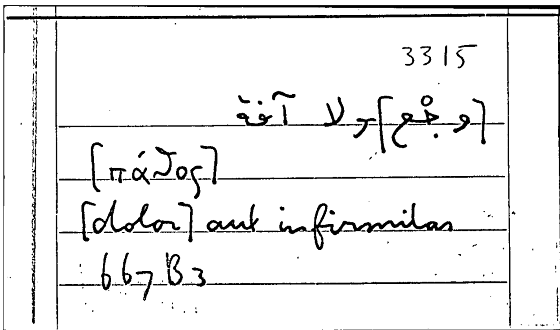 3315
[وجْع] ولا آفة
[πάϑος]
[dolor] aut infirmitas
667 B3